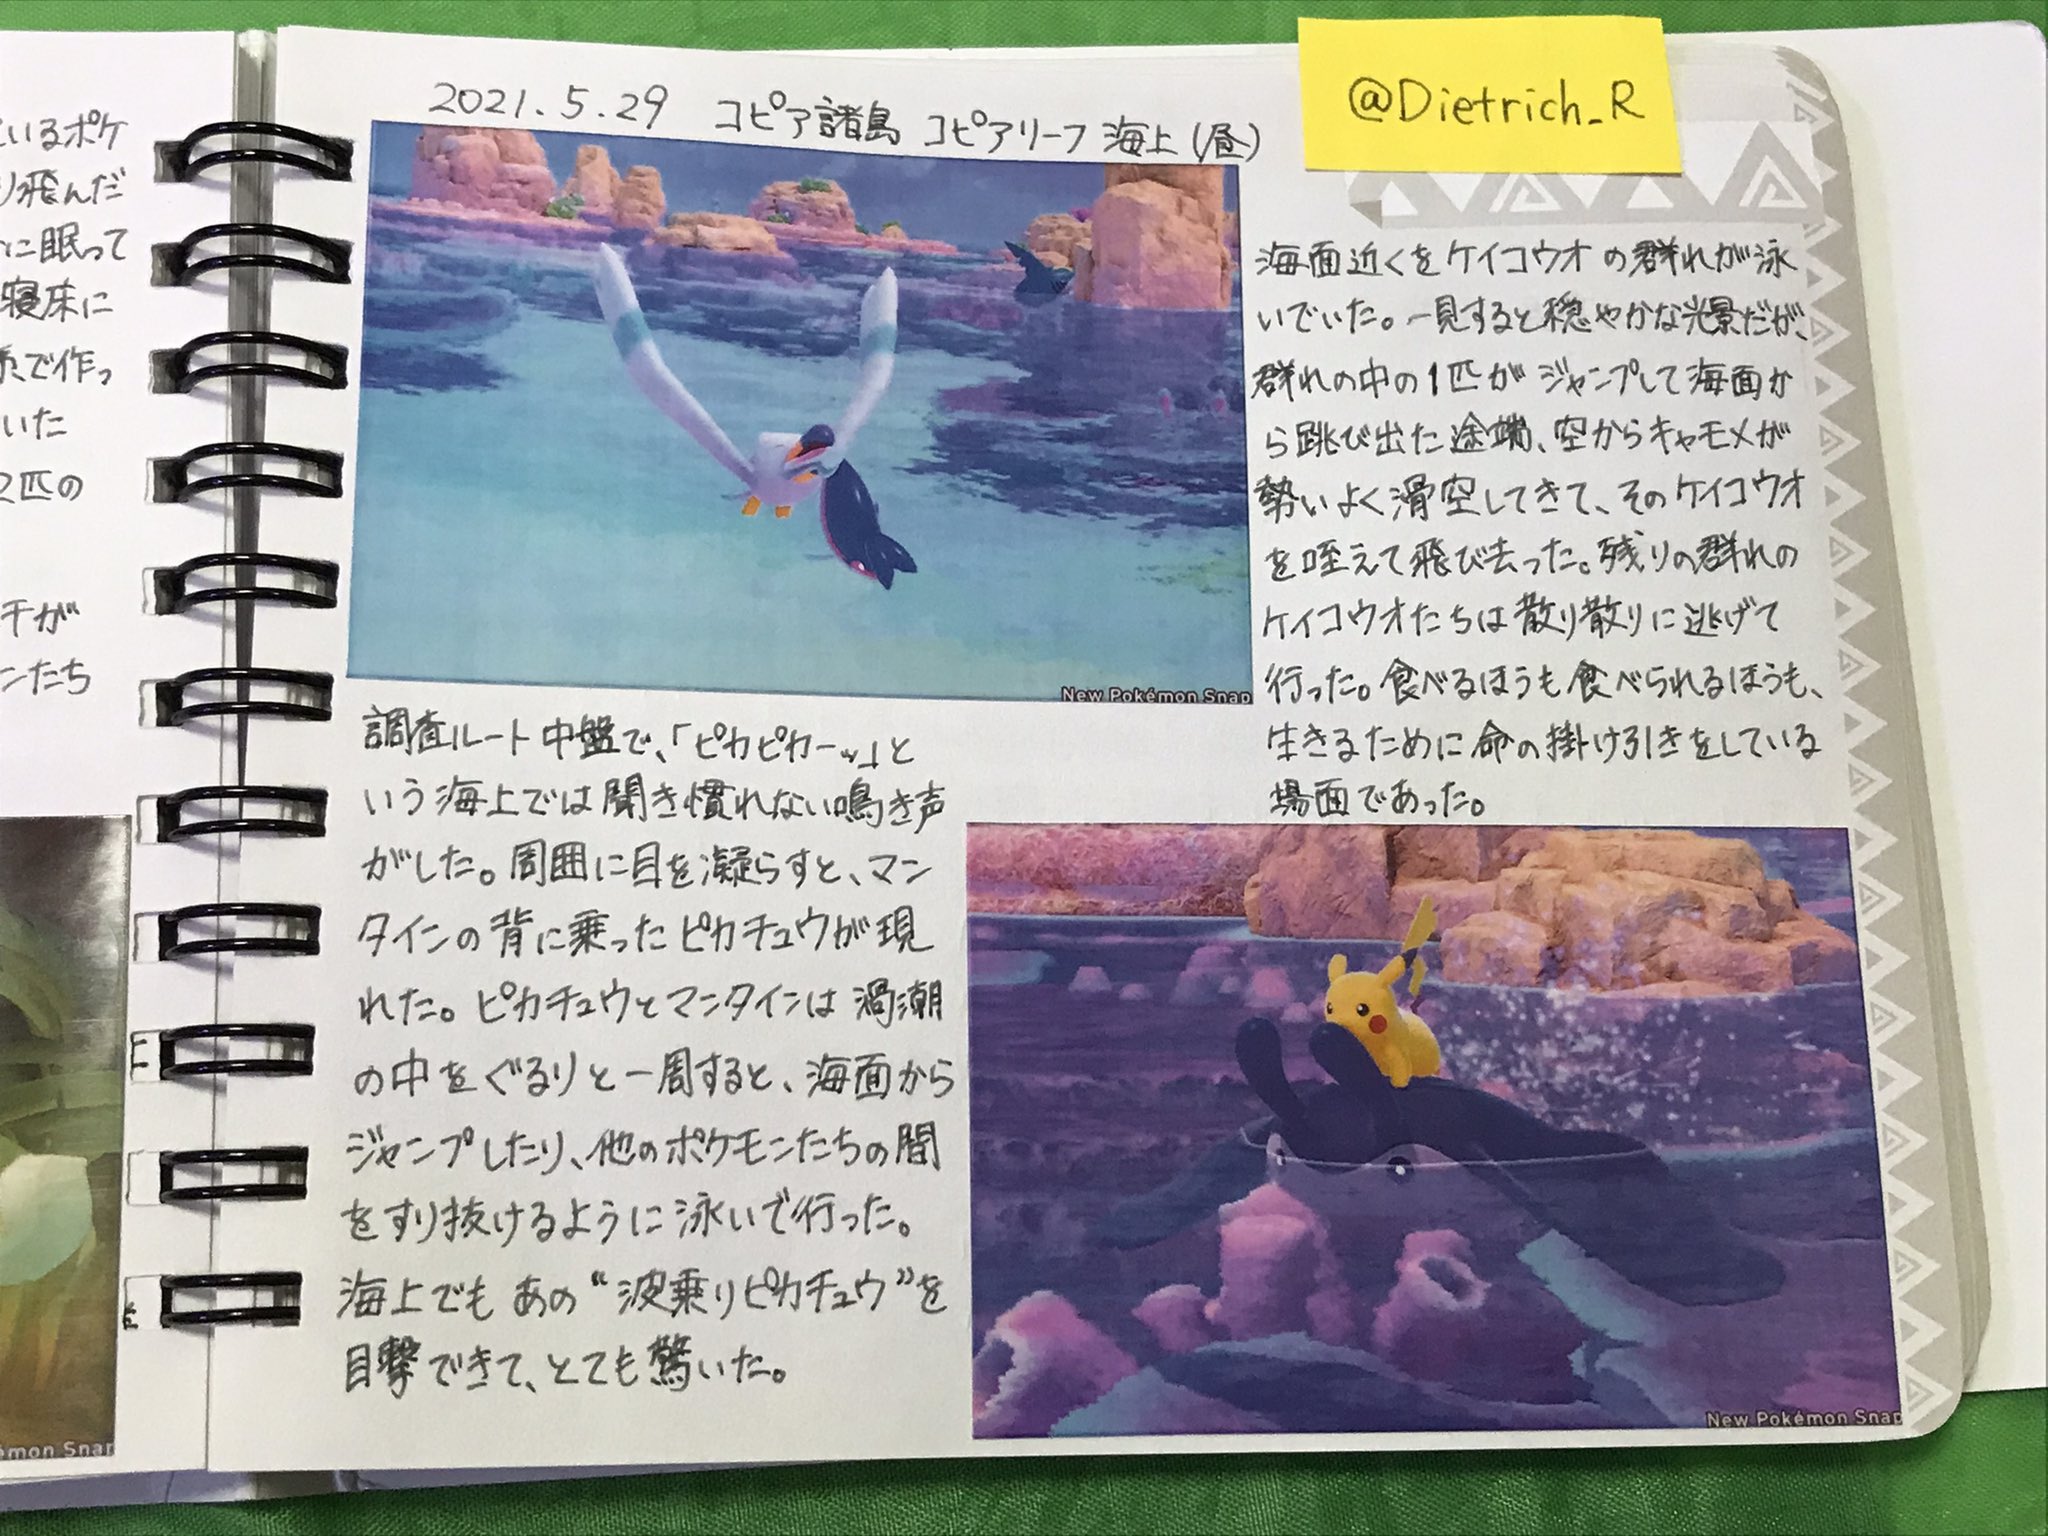 いるポケ
り飛んだ
に眠って
寝床に
で作っ
いた
2匹の
チが
ンたち
mon Snap
2021.5.29 コピア諸島 コピアリーフ 海上(昼)
@Dietrich_R
New Pokémon Snap
海面近くをケイコウオの群れが泳
いでいた。一見すると穏やかな光景だが、
群れの中の1匹がジャンプして海面か
ら跳び出た途端、空からキャモメが
勢いよく滑空してきて、そのケイコウオ
を咥えて飛び去った。残りの群れの
ケイコウオたちは散り散りに逃げて
行った。食べるほうも食べられるほうも、
生きるために命の掛け引きをしている
場面であった。
調査ルート中盤で、「ピカピカーッ」と
いう海上では聞き慣れない鳴き声
がした。周囲に目を凝らすと、マン
タインの背に乗ったピカチュウが現
れた。ピカチュウとマンタインは渦潮
の中をぐるりと一周すると、海面から
ジャンプしたり、他のポケモンたちの間
をすり抜けるように泳いで行った。
海上でもあの“波乗りピカチュウ”を
目撃できて、とても驚いた。
New Pokémon Snap